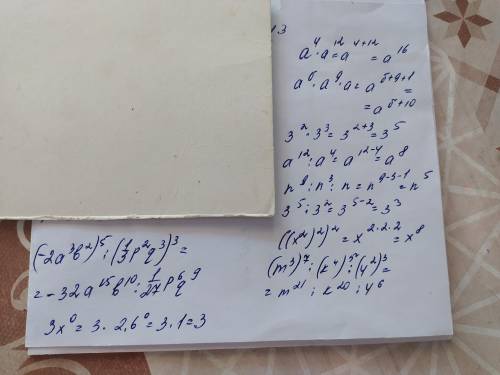 13
a⁴·a¹²=a⁴⁺¹²=a¹⁶
a⁵·a⁹·a=a⁵⁺⁹⁺¹=
=a⁵⁺¹⁰
3²·3³=3²⁺³=3⁵
a¹²:a⁴=a¹²⁻⁴=a⁸
n⁹:n³:n=n⁹⁻³⁻¹=n⁵
3⁵:3²=3⁵⁻²=3³
((x²)²)²=x²·²·²=x⁸
(m³)⁷:(k⁴)⁵:(4²)³=
=m²¹:k²⁰:4⁶
(-2a³b²)⁵:(1/3p²q³)³=
=-32a¹⁵b¹⁰:1/27p⁶q⁹
3x⁰=3·2,6⁰=3·1=3